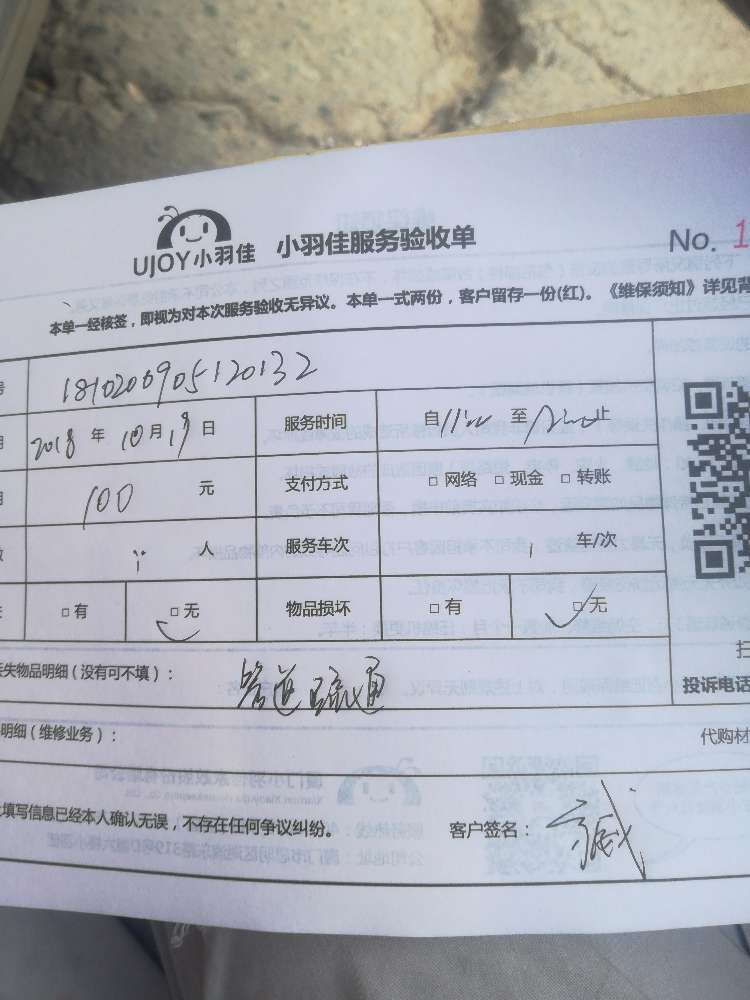 UJOY小羽佳 小羽佳服务验收单
No. 1
本单一经核签，即视为对本次服务验收无异议。本单一式两份，客户留存一份(红)。《维保须知》详见背
号 1810200905120132
2018 年 10月19日 服务时间 自11:00 至12:00止
100 元 支付方式 □网络 □现金 □转账
人 服务车次 车/次
□有 □无 物品损坏 □有 □无
失物品明细(没有可不填)： 管道疏通
投诉电话
明细(维修业务)： 代购材
填写信息已经本人确认无误，不存在任何争议纠纷。 客户签名：